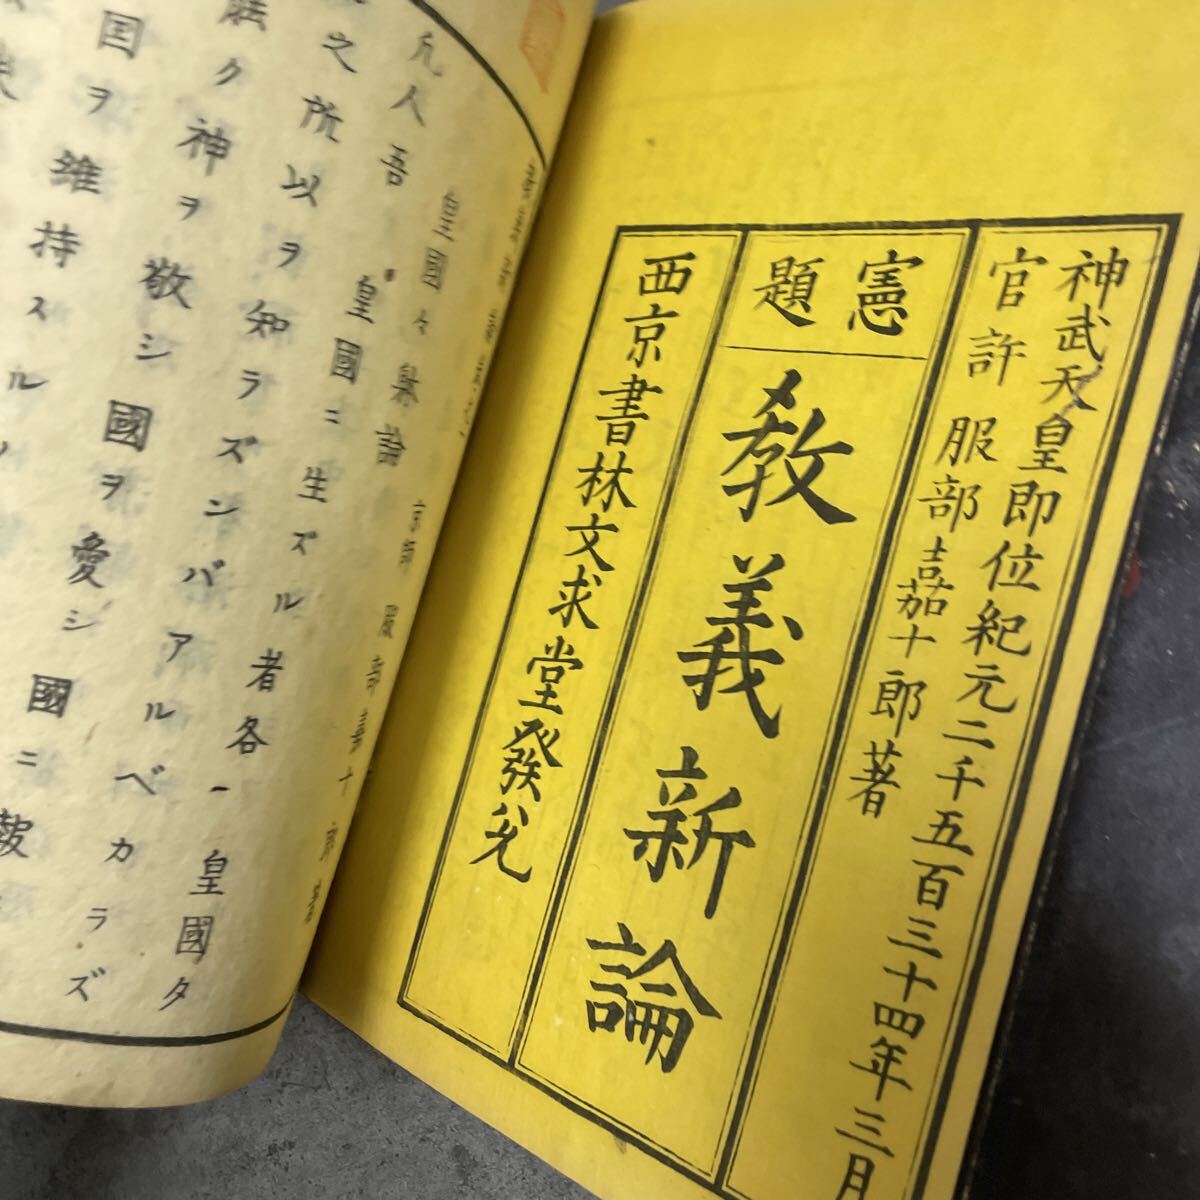 神武天皇即位紀元二千五百三十四年三月
官許 服部嘉十郎著
憲題
教義新論
西京書林文求堂發兌
皇国々躰論 京師 服部嘉十郎著
凡人吾 皇國ニ生ズル者各皇國タ
之所以ヲ知ラズンバアルベカラズ
ク神ヲ敬シ國ヲ愛シ國ニ報
国ヲ維持スル